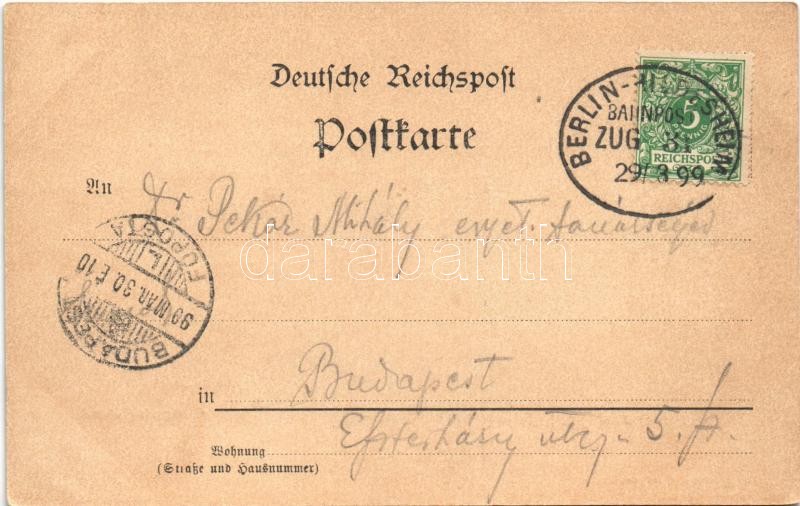 Deutsche Reichspost
Postkarte
5
REICHSPOST
BERLIN-HILDESHEIM
BAHNPOST
ZUG 31
29/3 99
An Dr Pekár Mihály egyet. tanársegéd
BUDAPEST
99 MÁR. 30. É 10
FŐPOSTA
darabanth
in Budapest
Eszterházy utcza 5. A.
Wohnung
(Straße und Hausnummer)